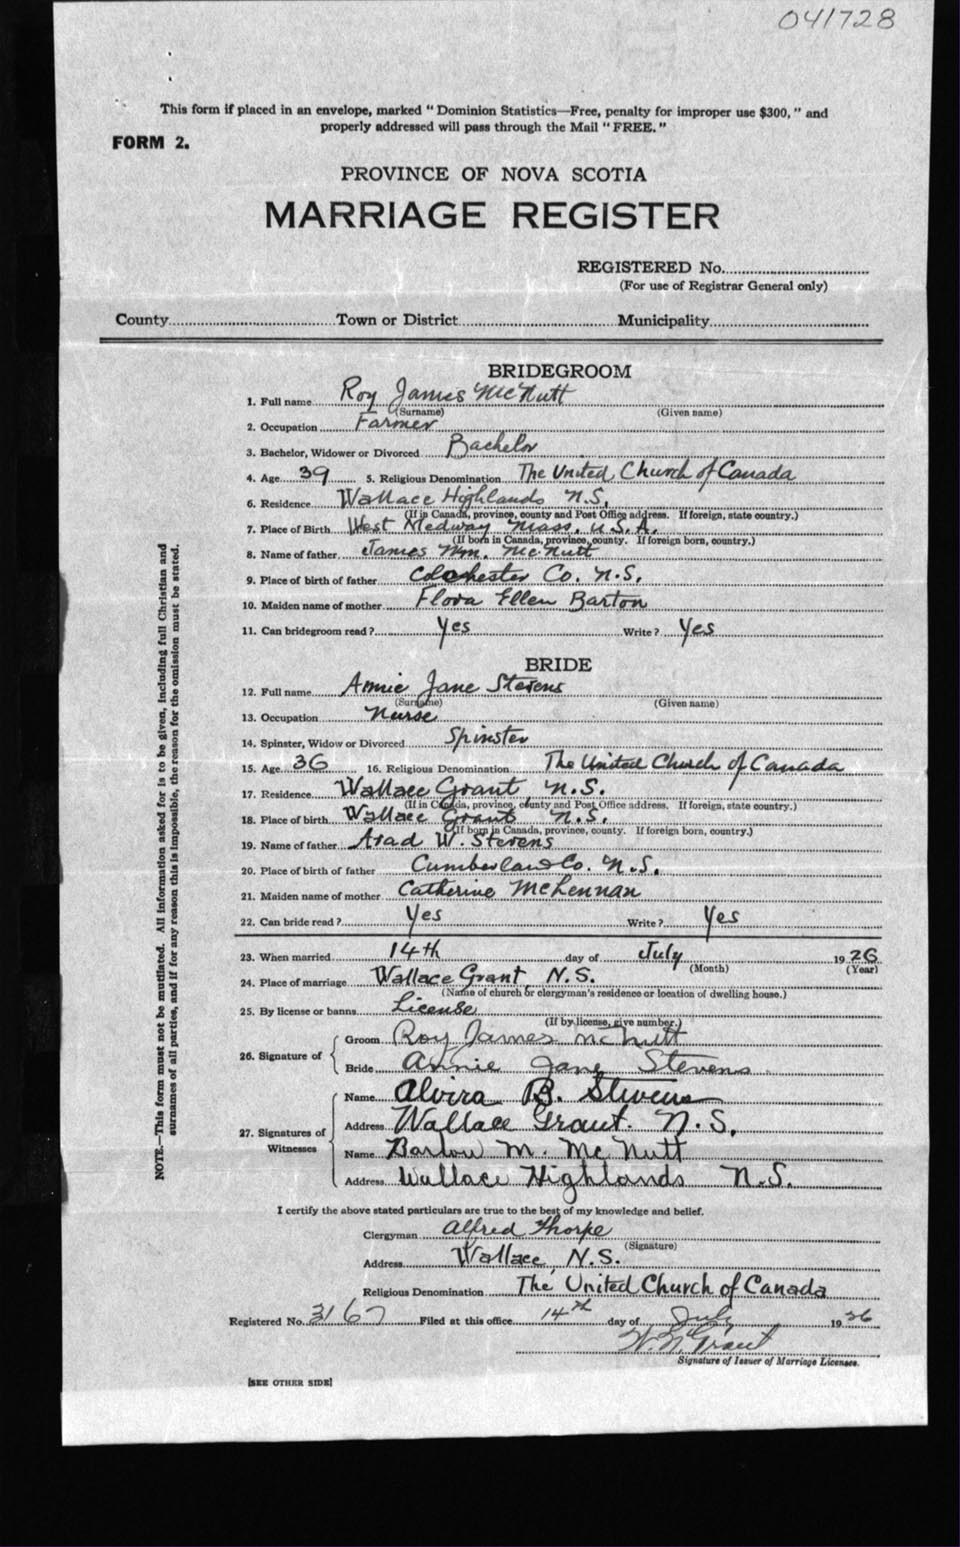 041728
This form if placed in an envelope, marked "Dominion Statistics—Free, penalty for improper use $300," and
properly addressed will pass through the Mail "FREE."
FORM 2.
PROVINCE OF NOVA SCOTIA
MARRIAGE REGISTER
REGISTERED No.
(For use of Registrar General only)
County Town or District Municipality
BRIDEGROOM
1. Full name Roy James McNutt
(Surname) (Given name)
2. Occupation Farmer
3. Bachelor, Widower or Divorced Bachelor
4. Age 39 5. Religious Denomination The United Church of Canada
6. Residence Wallace Highlands N.S.
(If in Canada, province, county and Post Office address. If foreign, state country.)
7. Place of Birth West Medway Mass. U.S.A.
(If born in Canada, province, county. If foreign born, country.)
8. Name of father James Wm. McNutt
9. Place of birth of father Colchester Co. N.S.
10. Maiden name of mother Flora Ellen Barton
11. Can bridegroom read? Yes Write? Yes
BRIDE
12. Full name Annie Jane Stevens
(Surname) (Given name)
13. Occupation Nurse
14. Spinster, Widow or Divorced Spinster
15. Age 36 16. Religious Denomination The United Church of Canada
17. Residence Wallace Grant, N.S.
(If in Canada, province, county and Post Office address. If foreign, state country.)
18. Place of birth Wallace Grant N.S.
(If born in Canada, province, county. If foreign born, country.)
19. Name of father Arad W. Stevens
20. Place of birth of father Cumberland Co. N.S.
21. Maiden name of mother Catherine McLennan
22. Can bride read? Yes Write? Yes
23. When married 14th day of July 1926
(Month) (Year)
24. Place of marriage Wallace Grant, N.S.
(Name of church or clergyman's residence or location of dwelling house.)
25. By license or banns License
(If by license, give number.)
26. Signature of
Groom Roy James McNutt
Bride Annie Jane Stevens
27. Signatures of Witnesses
Name Alvira B. Stevens
Address Wallace Grant. N.S.
Name Barton M. McNutt
Address Wallace Highlands N.S.
I certify the above stated particulars are true to the best of my knowledge and belief.
Clergyman Alfred Thorpe
(Signature)
Address Wallace, N.S.
Religious Denomination The United Church of Canada
Registered No. 3167 Filed at this office 14th day of July 1926
Grant
Signature of Issuer of Marriage Licenses.
[SEE OTHER SIDE]
NOTE.—This form must not be mutilated. All information asked for is to be given, including full Christian and
surnames of all parties, and if for any reason this is impossible, the reason for the omission must be stated.